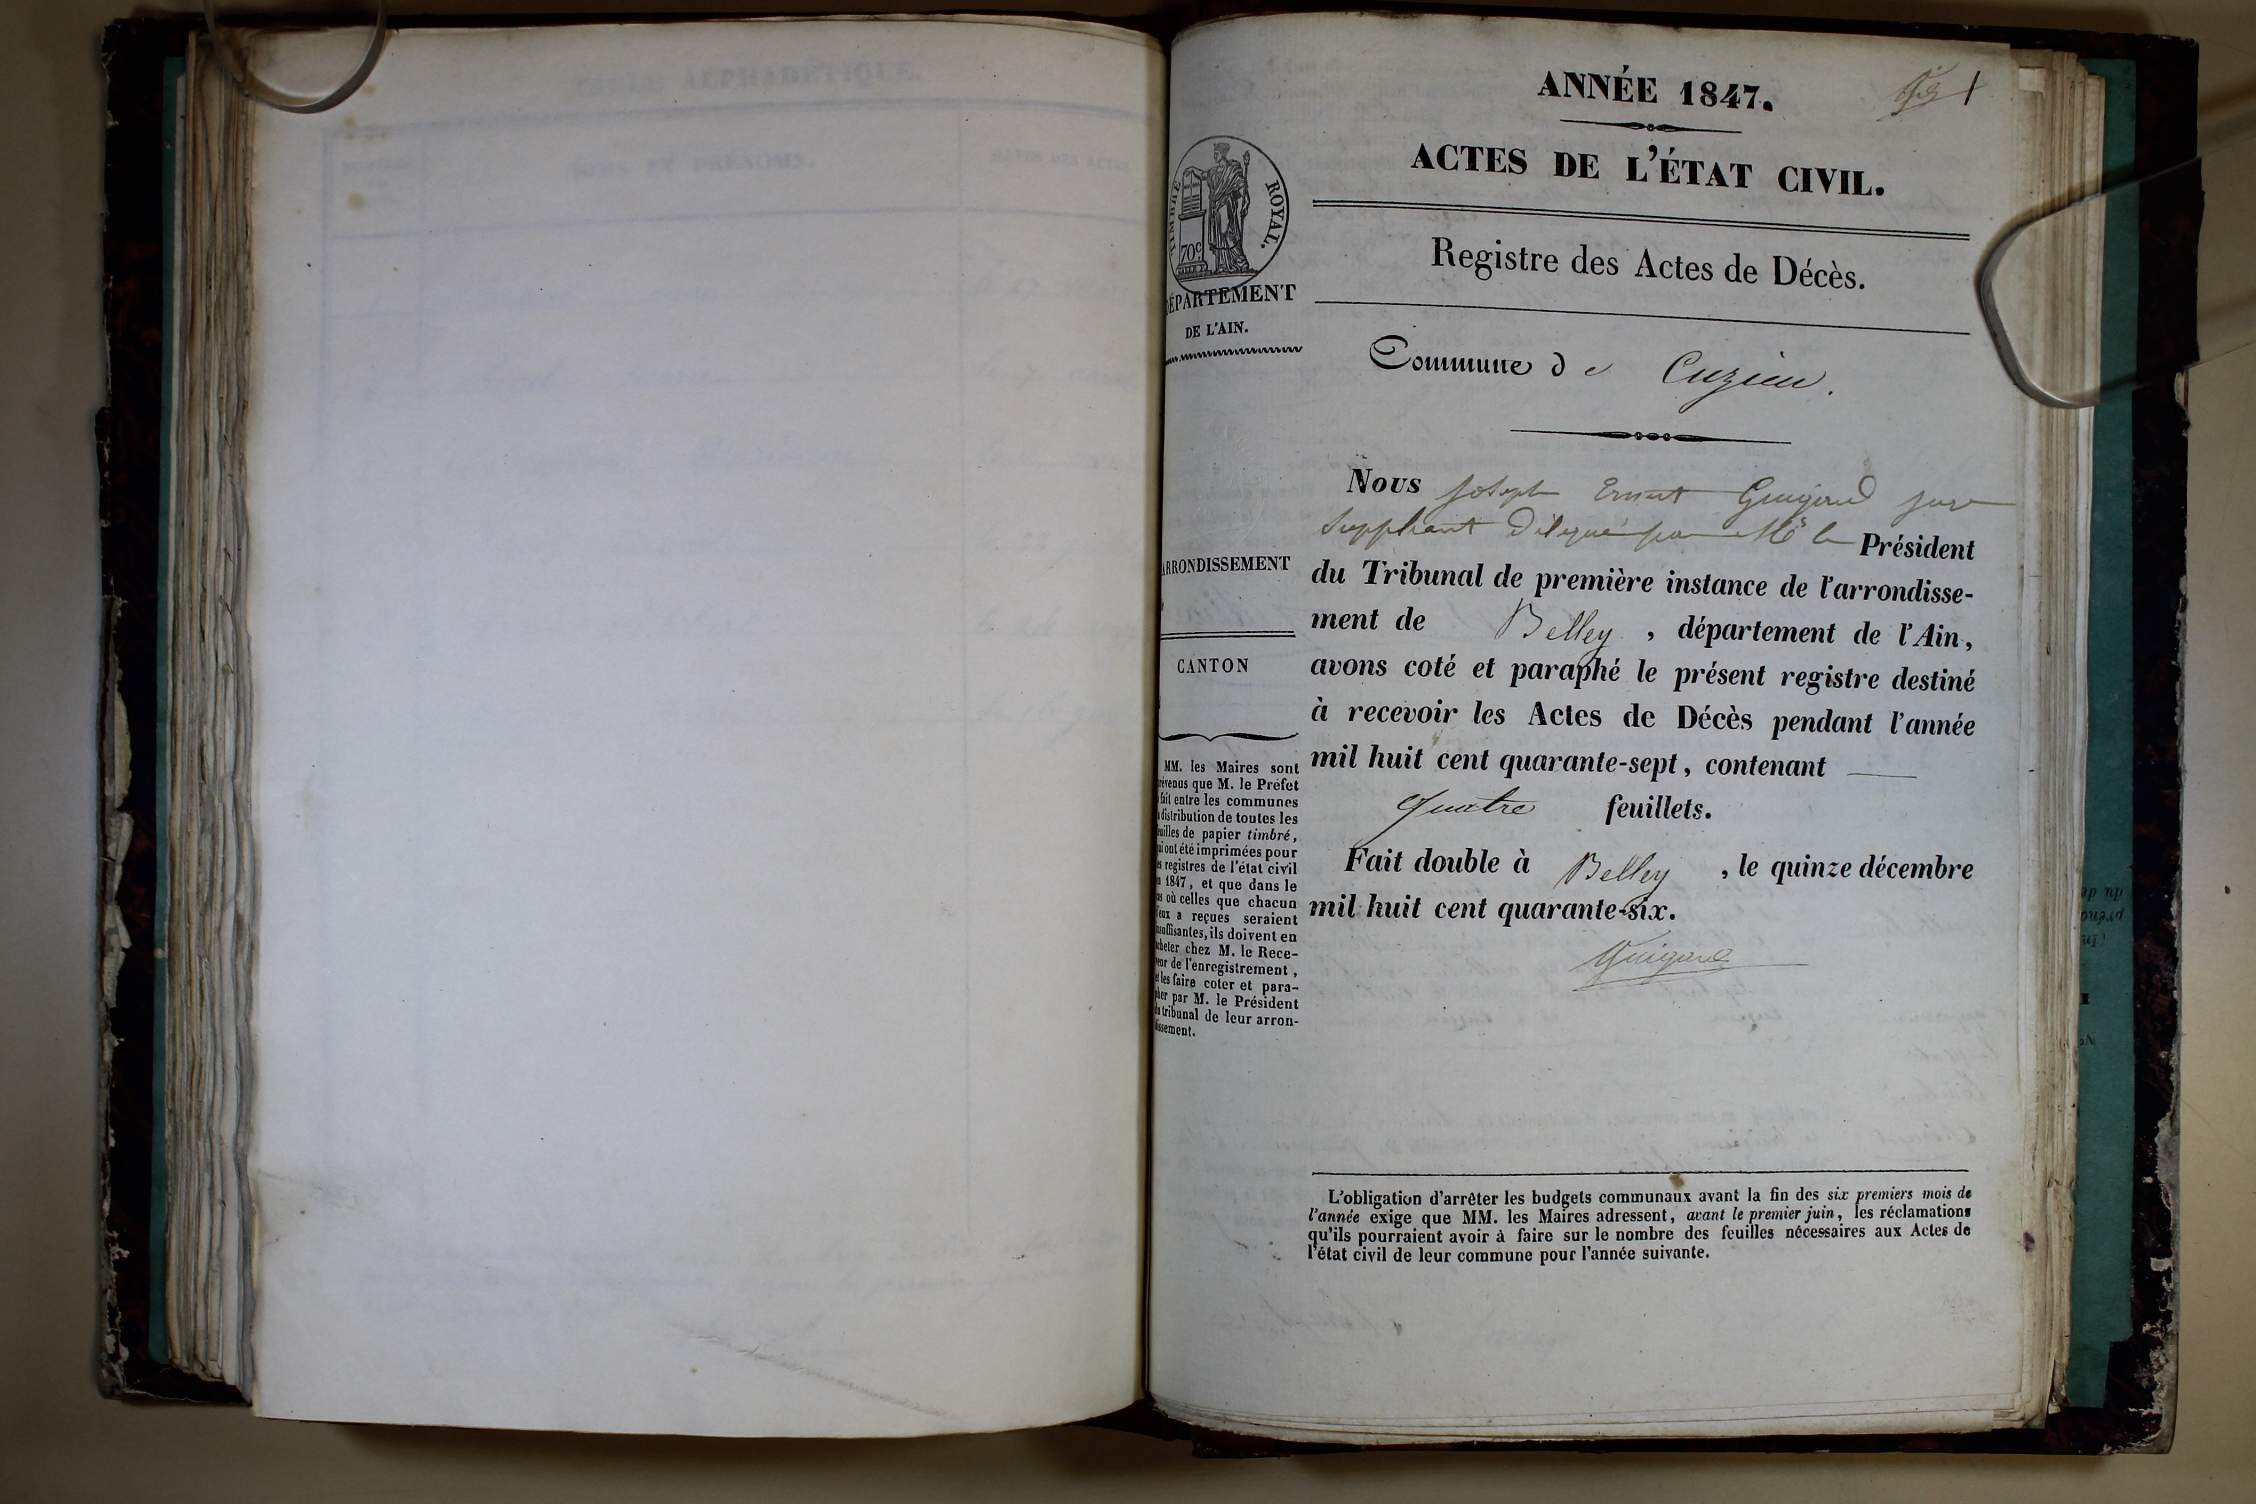 ANNÉE 1847.
1
ACTES DE L'ÉTAT CIVIL.
TIMBRE ROYAL.
70c
DÉPARTEMENT
DE L'AIN.
Registre des Actes de Décès.
Commune de Cuzieu.
ARRONDISSEMENT
CANTON
MM. les Maires sont
prévenus que M. le Préfet
fait entre les communes
distribution de toutes les
feuilles de papier timbré,
qui ont été imprimées pour
les registres de l'état civil
1847, et que dans le
cas où celles que chacun
d'eux a reçues seraient
insuffisantes, ils doivent en
acheter chez M. le Rece-
veur de l'enregistrement,
et les faire coter et para-
pher par M. le Président
du tribunal de leur arron-
dissement.
Nous Joseph Ernest Guigard juge
suppléant délégué par Mr le Président
du Tribunal de première instance de l'arrondisse-
ment de Belley, département de l'Ain,
avons coté et paraphé le présent registre destiné
à recevoir les Actes de Décès pendant l'année
mil huit cent quarante-sept, contenant
quatre feuillets.
Fait double à Belley, le quinze décembre
mil huit cent quarante-six.
Guigard
L'obligation d'arrêter les budgets communaux avant la fin des six premiers mois de
l'année exige que MM. les Maires adressent, avant le premier juin, les réclamations
qu'ils pourraient avoir à faire sur le nombre des feuilles nécessaires aux Actes de
l'état civil de leur commune pour l'année suivante.